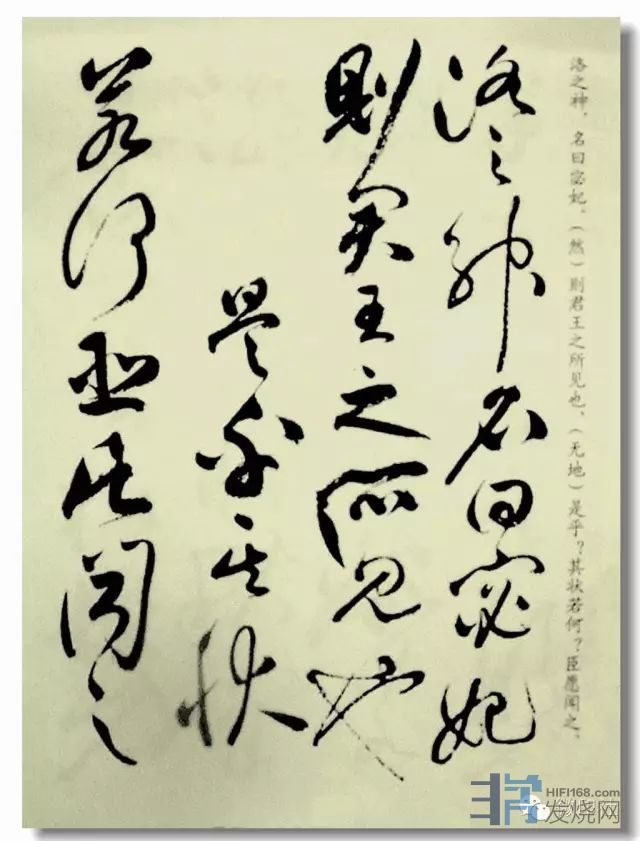 洛之神，名曰宓妃。（然）则君王之所见也，（无地）是乎？其状若何？臣愿闻之。
洛之神名曰宓妃
則君王之所見也
是乎其狀
若何臣願聞之
HIFI168.com
发烧网